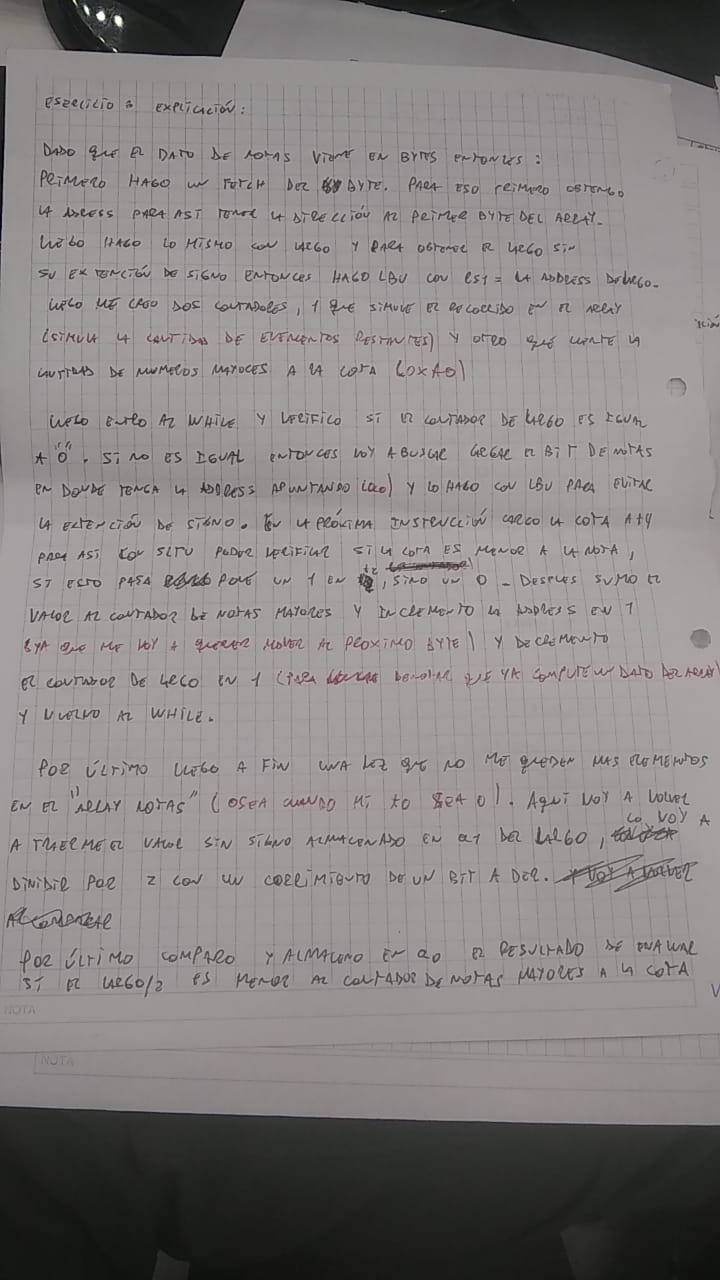 ESERCICIO 3 EXPLICACIÓN:
DADO QUE EL DATO DE NOTAS VIENE EN BYTES ENTONCES:
PRIMERO HAGO UN FETCH DEL BYTE. PARA ESO PRIMERO OBTENGO
LA ADRESS PARA ASÍ TENER LA DIRECCIÓN AL PRIMER BYTE DEL ARRAY.
LUEGO HAGO LO MISMO CON LARGO Y PARA OBTENER EL LARGO SIN
SU EXTENCIÓN DE SIGNO ENTONCES HAGO LBU CON RS1 = LA ADDRESS DE LARGO.
LUEGO ME CARGO DOS CONTADORES, 1 QUE SIMULE EL RECORRIDO EN EL ARRAY
(SIMULA LA CANTIDAD DE ELEMENTOS RESTANTES) Y OTRO QUE CUENTE LA
CANTIDAD DE NUMEROS MAYORES A LA COTA (0XA0)
LUEGO ENTRO AL WHILE Y VERIFICO SI EL CONTADOR DE LARGO ES IGUAL
A "0". SI NO ES IGUAL ENTONCES VOY A BUSCAR CARGAR EL BIT DE NOTAS
EN DONDE TENGA LA ADDRESS APUNTANDO Y LO HAGO CON LBU PARA EVITAR
LA EXTENCIÓN DE SIGNO. EN LA PRÓXIMA INSTRUCCIÓN CARGO LA COTA A t4
PARA ASÍ CON SLTU PODER VERIFICAR SI LA COTA ES MENOR A LA NOTA,
SI ESTO PASA PONE UN 1 EN t2, SINO UN 0 - DESPUES SUMO EL
VALOR AL CONTADOR DE NOTAS MAYORES Y INCREMENTO LA ADDRESS EN 1
(YA QUE ME VOY A QUERER MOVER AL PROXIMO BYTE) Y DECREMENTO
EL CONTADOR DE LARGO EN 1 (PARA DENOTAR QUE YA COMPUTE UN DATO DEL ARRAY)
Y VUELVO AL WHILE.
POR ÚLTIMO LLEGO A FIN UNA VEZ QUE NO ME QUEDEN MAS ELEMENTOS
EN EL "ARRAY NOTAS" (OSEA CUANDO MI t0 SEA 0). AQUÍ VOY A VOLVER
A TRAERME EL VALOR SIN SIGNO ALMACENADO EN a1 DEL LARGO, LO VOY A
DIVIDIR POR 2 CON UN CORRIMIENTO DE UN BIT A DER.
POR ÚLTIMO COMPARO Y ALMACENO EN a0 EL RESULTADO DE EVALUAR
SI EL LARGO/2 ES MENOR AL CONTADOR DE NOTAS MAYORES A LA COTA
NOTA
NOTA